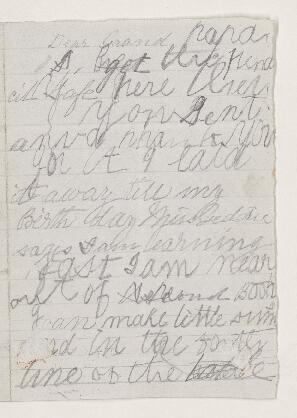 Dear Grand papa
I got the kind
all safe here that
you sent
and thank you
for it I laid
it away till my
Birth day Miss
says I am learning
fast I am near
out of second Book
I can make little sums
and in the forty
line of the